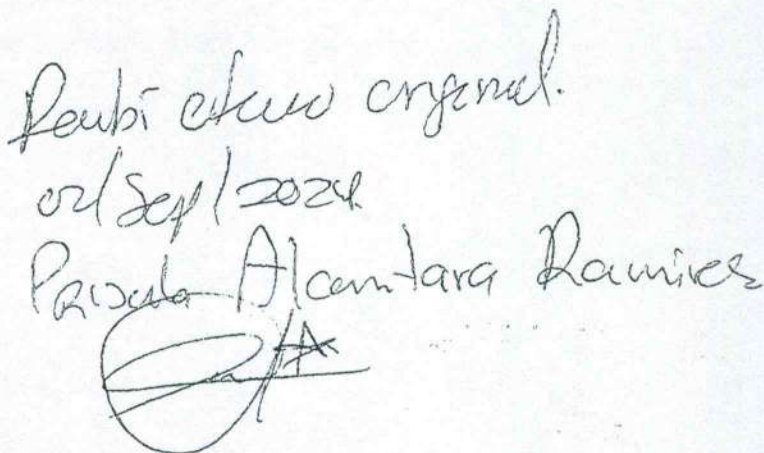 Recibí oficio original.
02/Sep/2024.
Priscila Alcantara Ramires